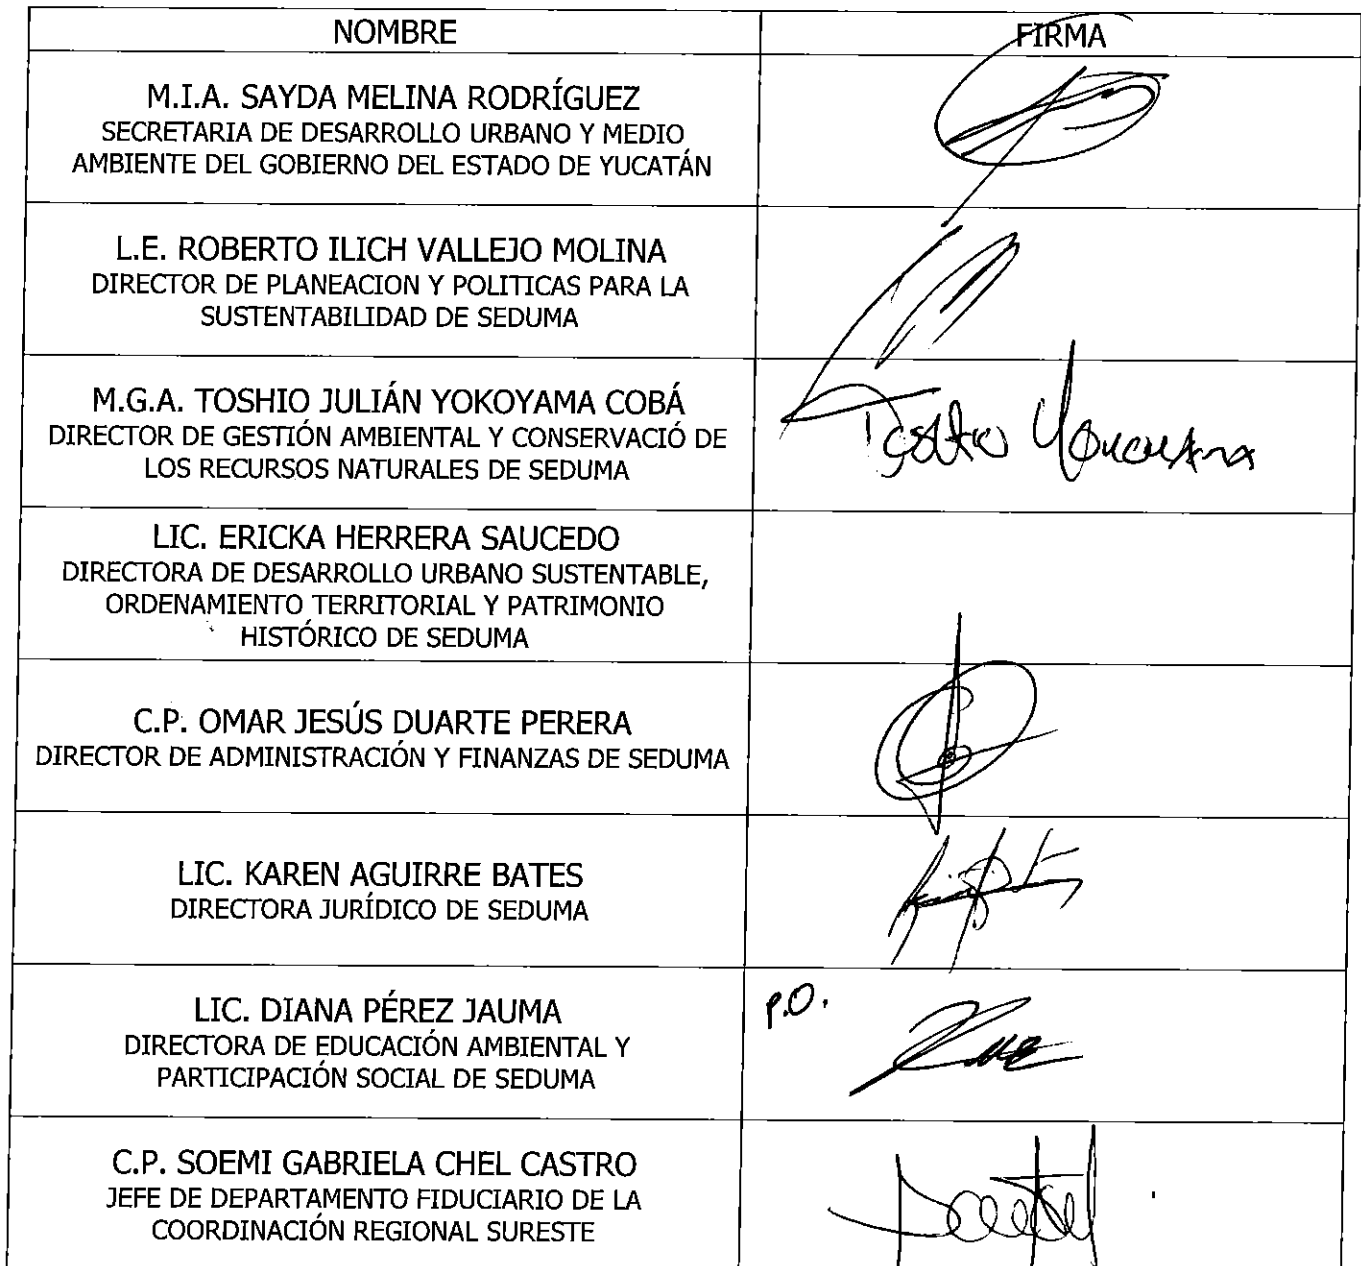 NOMBRE
FIRMA
M.I.A. SAYDA MELINA RODRÍGUEZ
SECRETARIA DE DESARROLLO URBANO Y MEDIO
AMBIENTE DEL GOBIERNO DEL ESTADO DE YUCATÁN
L.E. ROBERTO ILICH VALLEJO MOLINA
DIRECTOR DE PLANEACION Y POLITICAS PARA LA
SUSTENTABILIDAD DE SEDUMA
M.G.A. TOSHIO JULIÁN YOKOYAMA COBÁ
DIRECTOR DE GESTIÓN AMBIENTAL Y CONSERVACIÓ DE
LOS RECURSOS NATURALES DE SEDUMA
Toshio Yokoyama
LIC. ERICKA HERRERA SAUCEDO
DIRECTORA DE DESARROLLO URBANO SUSTENTABLE,
ORDENAMIENTO TERRITORIAL Y PATRIMONIO
HISTÓRICO DE SEDUMA
C.P. OMAR JESÚS DUARTE PERERA
DIRECTOR DE ADMINISTRACIÓN Y FINANZAS DE SEDUMA
LIC. KAREN AGUIRRE BATES
DIRECTORA JURÍDICO DE SEDUMA
LIC. DIANA PÉREZ JAUMA
DIRECTORA DE EDUCACIÓN AMBIENTAL Y
PARTICIPACIÓN SOCIAL DE SEDUMA
P.O.
C.P. SOEMI GABRIELA CHEL CASTRO
JEFE DE DEPARTAMENTO FIDUCIARIO DE LA
COORDINACIÓN REGIONAL SURESTE